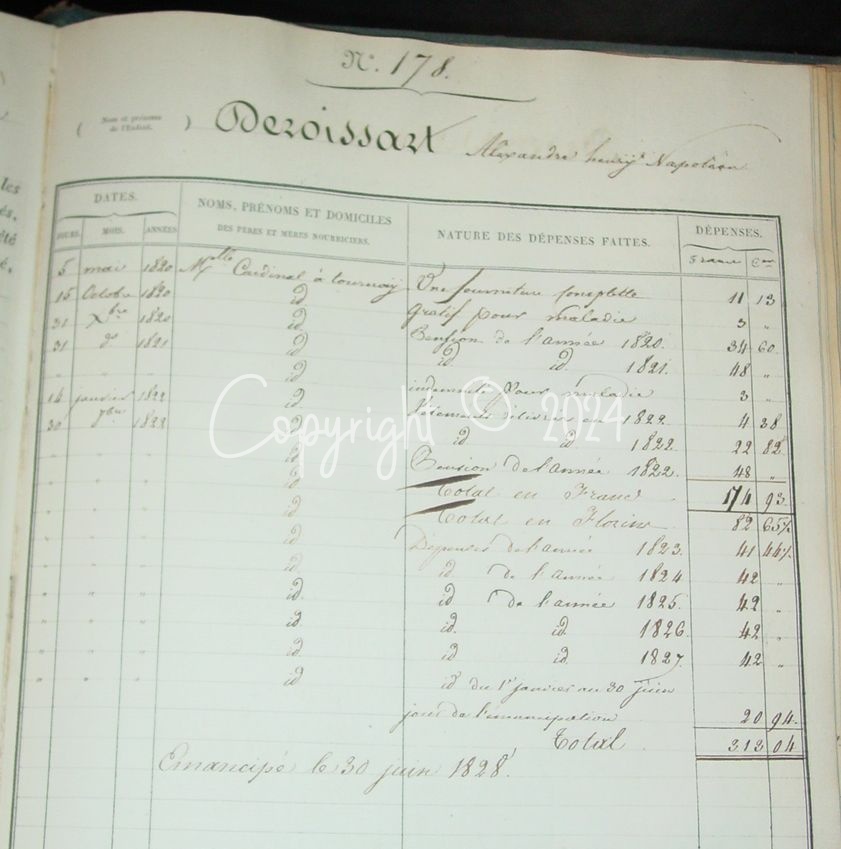 N. 178.
( Nom et prénoms de l'Enfant. ) Deroissart Alexandre henry Napoléon
les
és,
été
DATES. NOMS, PRÉNOMS ET DOMICILES DES PERES ET MERES NOURRICIERS. NATURE DES DÉPENSES FAITES. DÉPENSES.
JOURS. MOIS. ANNÉES Francs Cmes
5 mai 1820 Melle Cardinal à tournay Une fourniture Complette 11 13
15 Octobre 1820 id Gratif pour maladie 3 "
31 Xbre 1820 id Pension de l'année 1820. 34 60
31 do 1821 id id. id. 1821. 48 "
" " " id indemnité pour maladie 3 "
14 janvier 1822 id Vêtements délivrés en 1822. 4 38
30 7bre 1822 id id id. 1822. 22 82
" " " id Pension de l'année 1822. 48 "
" " " id Total en Francs 174 93
" " " id Total en Florins 82 65½
" " " id Dépenses de l'année 1823. 41 44½
" " " id id de l'année 1824 42 "
" " " id id de l'année 1825. 42 "
" " " id id. id. 1826. 42 "
" " " id id id 1827. 42 "
" " " id id du 1er janvier au 30 juin
jour de l'émancipation 20 94.
Total 313 04
Emancipé le 30 juin 1828.
Copyright © 2024